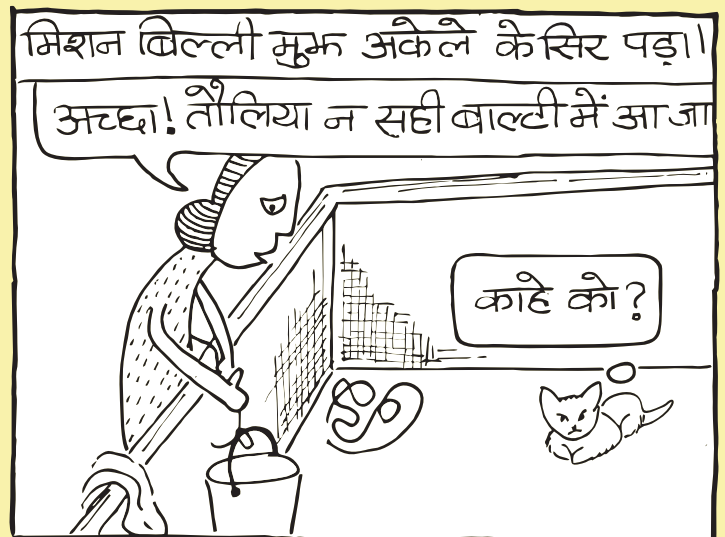 मिशन बिल्ली मुझ अकेले के सिर पड़ा।
अच्छा! तौलिया न सही बाल्टी में आ जा
काहे को?